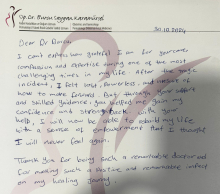 Op.Dr. Burcu Saygan Karamürsel
30.10.2024
Dear Dr Burcu
I can't explain grateful I am for your care,
compassion and expertise during one of the most
challenging times in my life. After the tragic
incident, I felt lost, powerless, and
how to make friends. But through your support
and skilled guidance, you helped me gain my
confidence and strength back. By your
help, I will now be able to rebuild my life
with a sense of empowerment that I thought
I will never feel again.
Thank you for being such a remarkable doctor and
for making such a positive and remarkable impact
on my healing journey.